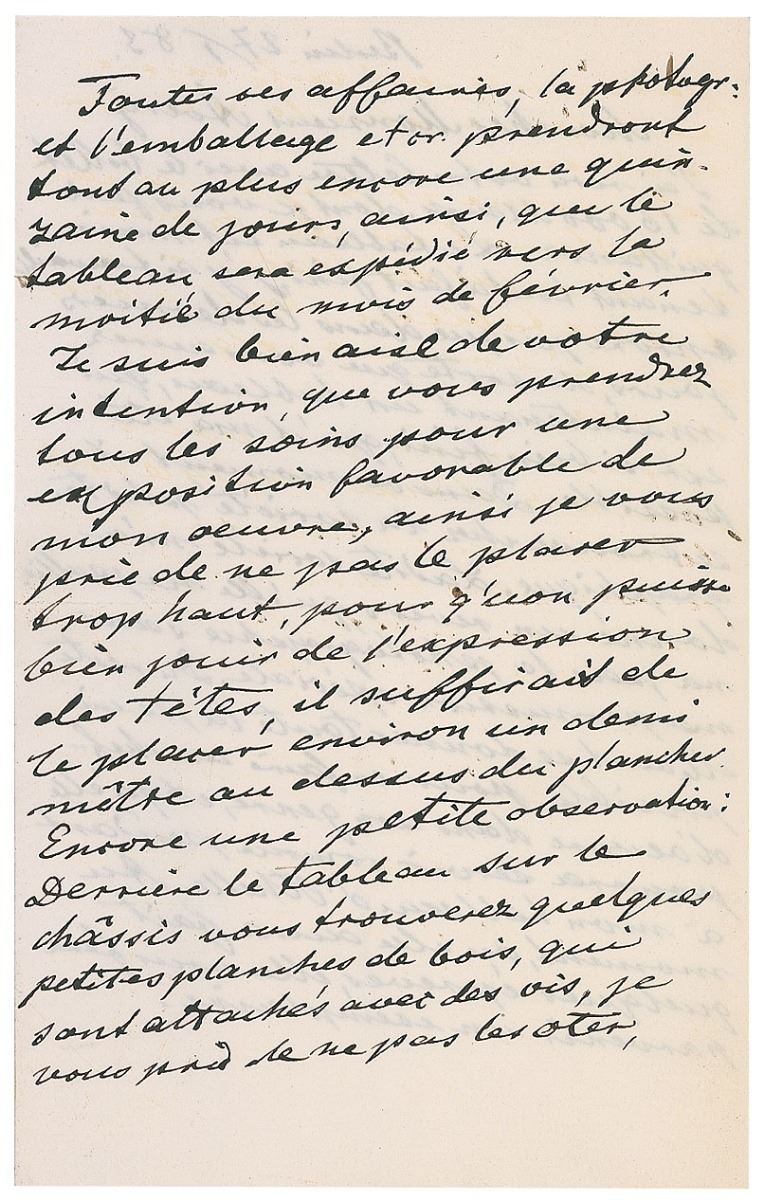 Toutes ces affaires, la photogr:
et l'emballage etc. prendront
tout au plus encore une quin-
zaine de jours, ainsi, que le
tableau sera expédié vers la
moitié du mois de février.
Je suis bien aise de votre
intention, que vous prendrez
tous les soins pour une
exposition favorable de
mon oeuvre, ainsi je vous
prie de ne pas le placer
trop haut, pour qu'on puisse
bien jouir de l'expression
des têtes, il suffirait de
le placer environ un demi
mêtre au dessus du plancher.
Encore une petite observation:
Derrière le tableau sur le
châssis vous trouverez quelques
petites planches de bois, qui
sont attachés avec des vis, je
vous prie de ne pas les oter,